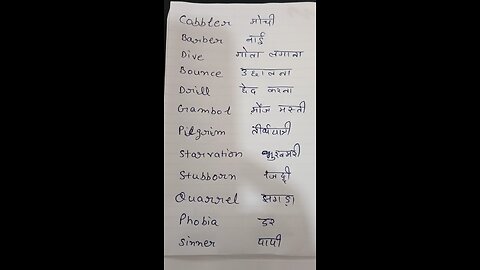 Cabbler मोची
Barber नाई
Dive गोता लगाना
Bounce उछालना
Drill छेद करना
Gambol मौज मस्ती
Pilgrim तीर्थयात्री
Starvation भुखमरी
Stubborn जिद्दी
Quarrel झगड़ा
Phobia डर
Sinner पापी